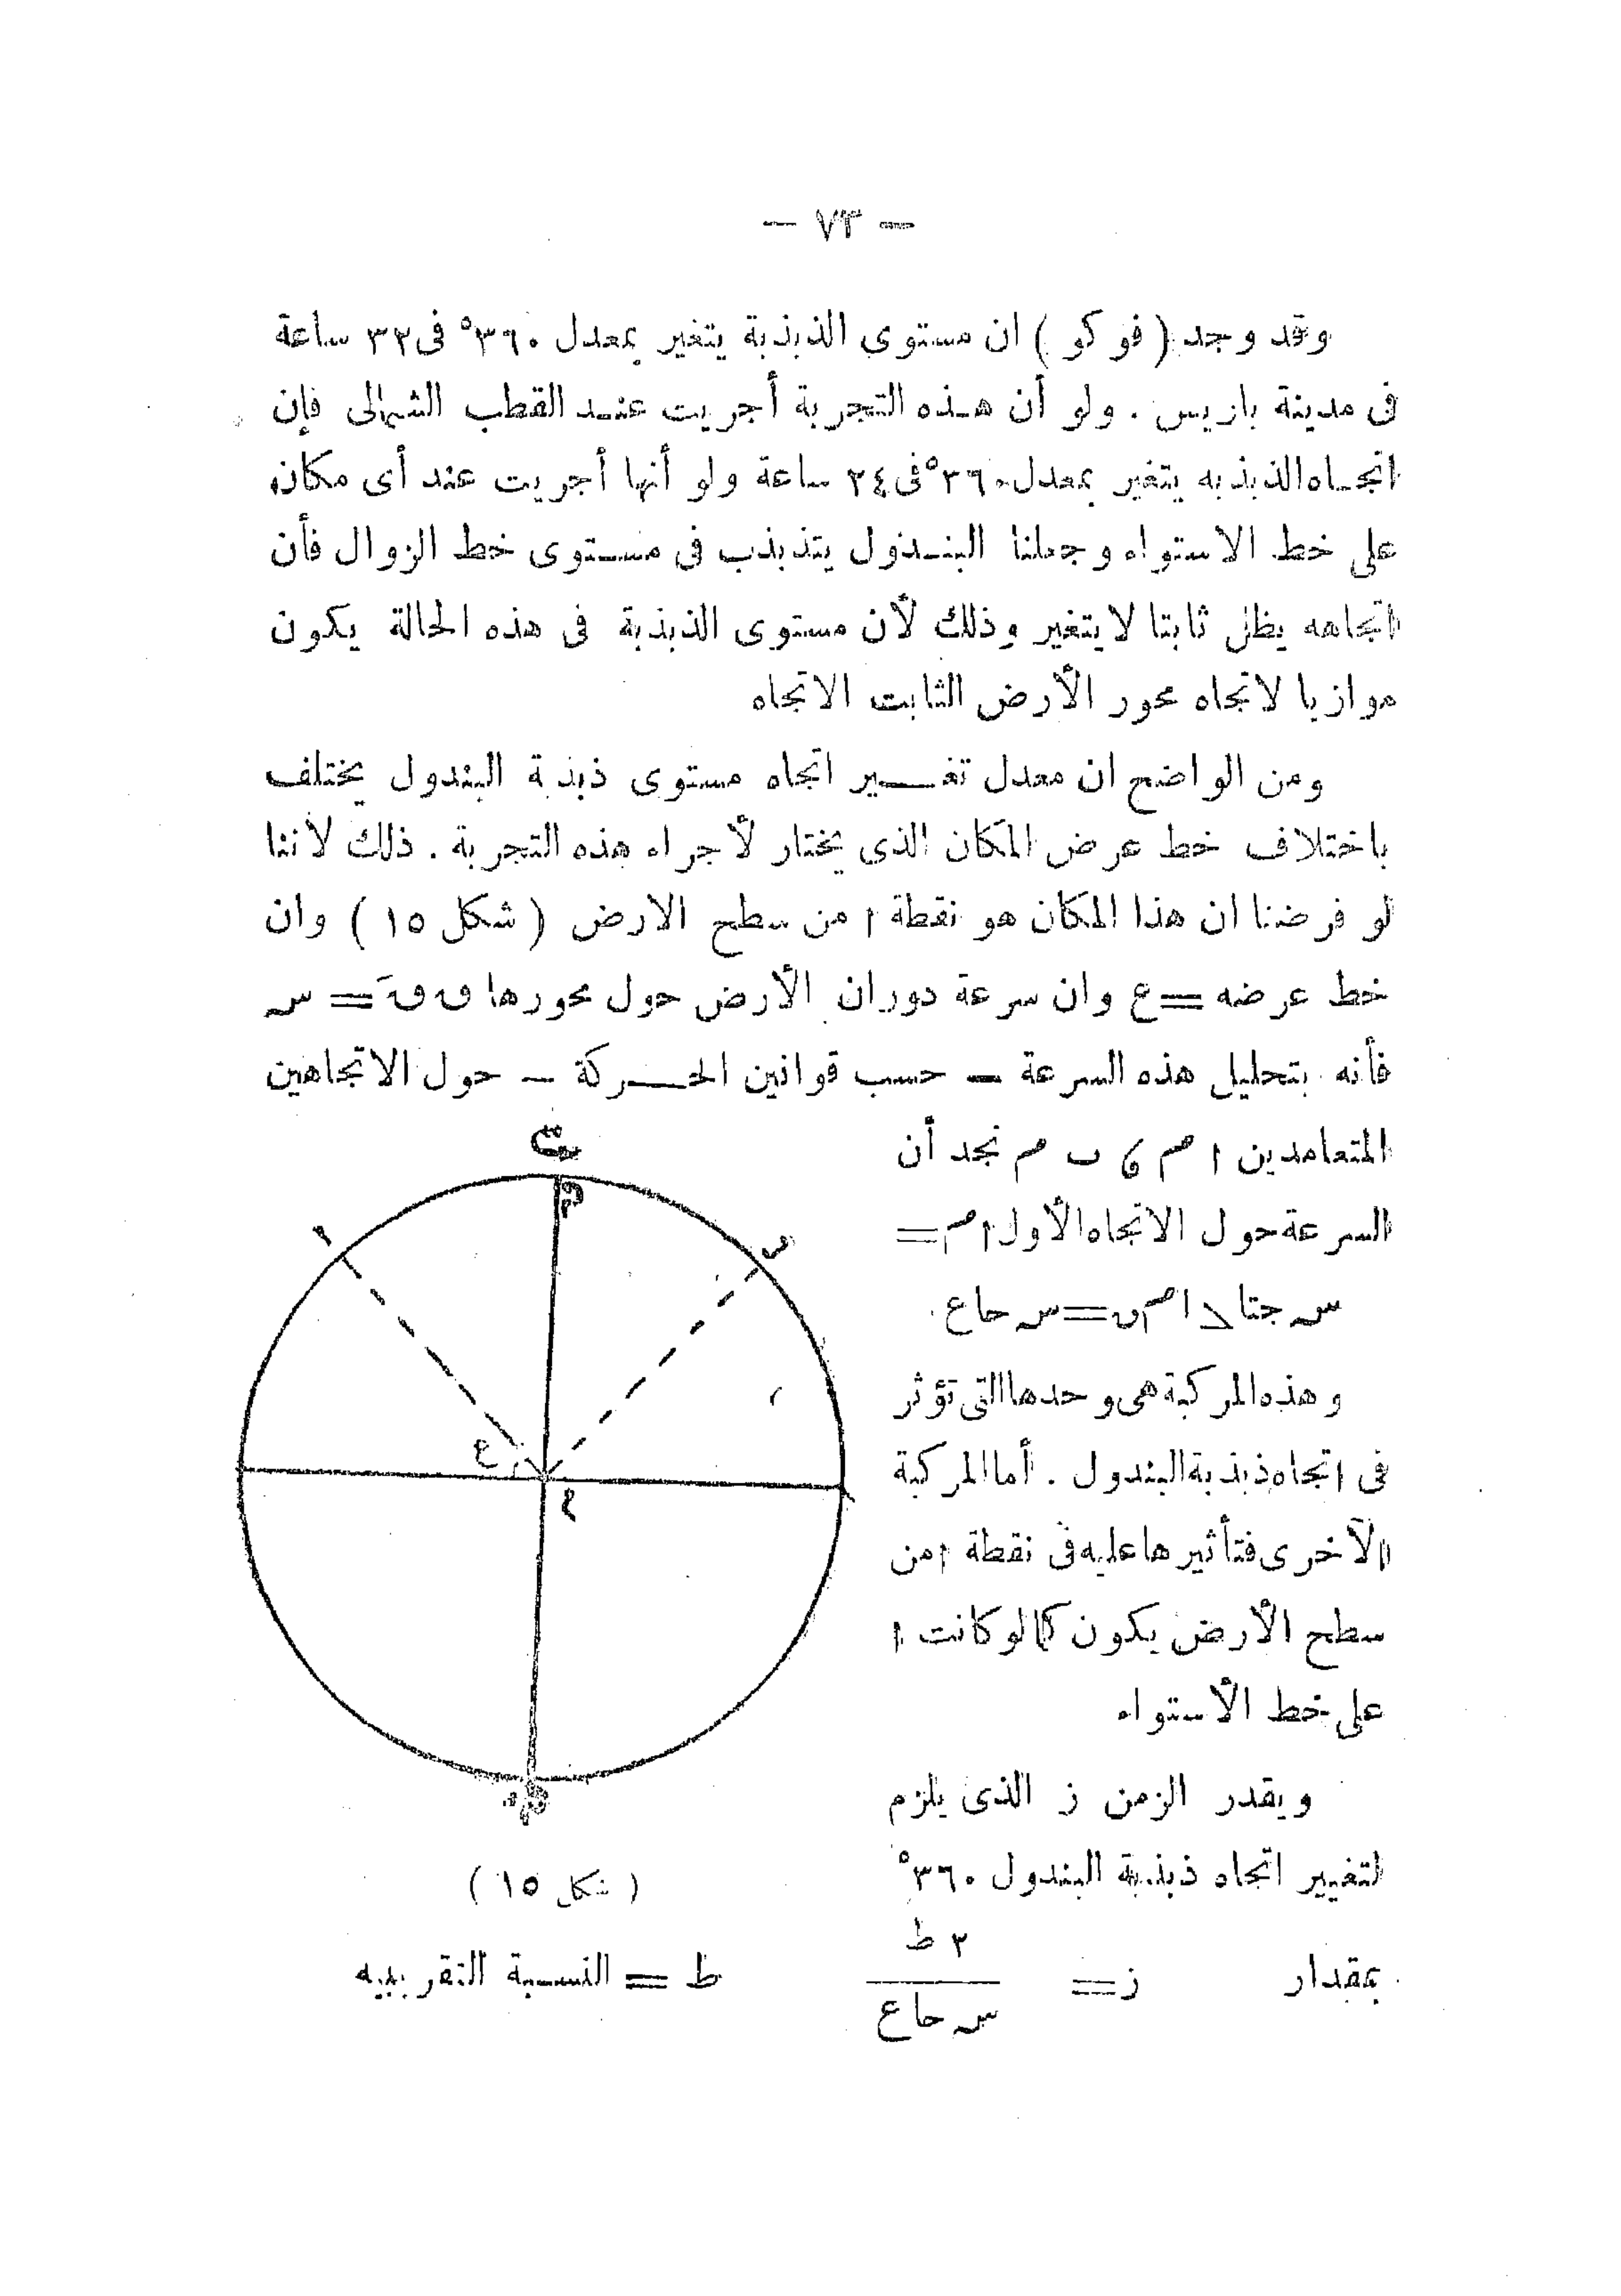 — ٧٣ —
وقد وجد ( فوكو ) ان مستوى الذبذبة يتغير بمعدل ٣٦٠° فى ٣٢ ساعة
فى مدينة باريس . ولو أن هذه التجربة أجريت عند القطب الشمالى فإن
اتجاه الذبذبه يتغير بمعدل ٣٦٠° فى ٢٤ ساعة ولو أنها أجريت عند أى مكان
على خط الاستواء وجعلنا البندول يتذبذب فى مستوى خط الزوال فأن
اتجاهه يظل ثابتا لا يتغير وذلك لأن مستوى الذبذبة فى هذه الحالة يكون
موازيا لاتجاه محور الأرض الثابت الاتجاه
ومن الواضح ان معدل تغير اتجاه مستوى ذبذبة البندول يختلف
باختلاف خط عرض المكان الذى يختار لأجراء هذه التجربة . ذلك لأننا
لو فرضنا ان هذا المكان هو نقطة ا من سطح الارض ( شكل ١٥ ) وان
خط عرضه = ع وان سرعة دوران الأرض حول محورها ق قَ = س
فأنه بتحليل هذه السرعة — حسب قوانين الحركة — حول الاتجاهين
المتعامدين ا م ، ب م نجد أن
السرعة حول الاتجاه الأول ا م =
س جتا > ا م ق = س حا ع .
وهذه المركبة هى وحدها التى تؤثر
فى اتجاه ذبذبة البندول . أما المركبة
الأخرى فتأثيرها عليه فى نقطة ا من
سطح الأرض يكون كما لو كانت ا
على خط الأستواء
ويقدر الزمن ز الذى يلزم
لتغيير اتجاه ذبذبة البندول ٣٦٠°
بمقدار ز = ٢ ط / س حا ع ط = النسبة التقريبيه
ا
ب
ع
م
( شكل ١٥ )